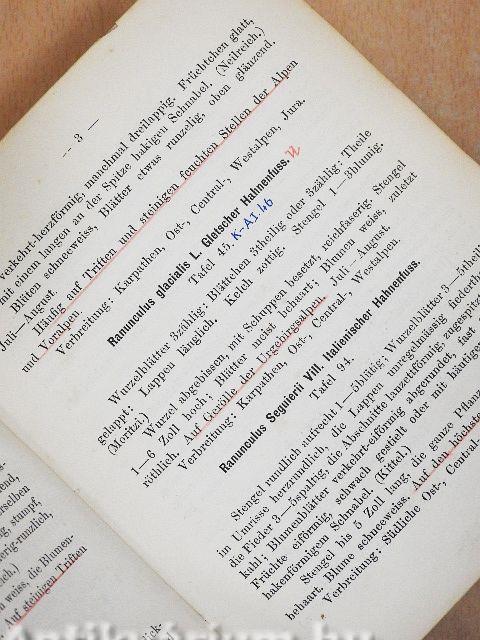 — 3 —
verkehrt-herzförmig, manchmal dreilappig. Früchtchen glatt,
mit einem langen an der Spitze hakigen Schnabel. (Neilreich.)
Blüten schneeweiss, Blätter etwas runzelig, oben glänzend.
Juli—August.
Häufig auf Triften und steinigen feuchten Stellen der Alpen
und Voralpen.
Verbreitung: Karpathen, Ost-, Central-, Westalpen, Jura.
Ranunculus glacialis L. Gletscher Hahnenfuss.
Tafel 45. K-AI.46
Wurzelblätter 3zählig: Blättchen 3teilig oder 3zählig; Theile
gelappt; Lappen länglich. Kelch zottig. Stengel 1—3blumig.
(Moritzi.)
Wurzel abgebissen, mit Schuppen besetzt, reichfaserig. Stengel
1—6 Zoll hoch; Blätter meist behaart; Blumen weiss, zuletzt
röthlich. Auf Gerölle der Urgebirgsalpen. Juli—August.
Verbreitung: Karpathen, Ost-, Central-, Westalpen.
Ranunculus Seguierii Vill. Italienischer Hahnenfuss.
Tafel 94.
Stengel rundlich aufrecht 1—5blütig; Wurzelblätter 3—5theilig
im Umrisse herzrundlich, die Lappen unregelmässig fiedertheilig
die Fieder 3—5spaltig, die Abschnitte lanzettförmig, zugespitzt
kahl; Blumenblätter verkehrt-eiförmig abgerundet, fast
Früchte eiförmig, schwach gestielt oder mit häutigen
hakenförmigem Schnabel. (Kittel.)
Stengel bis 5 Zoll lang, die ganze Pflanze
behaart, Blume schneeweiss. Auf den höchsten
Verbreitung: Südliche Ost-, Central-
stumpf,
weiss, die Blumen-
Auf steinigen Triften
Antikvárium.hu